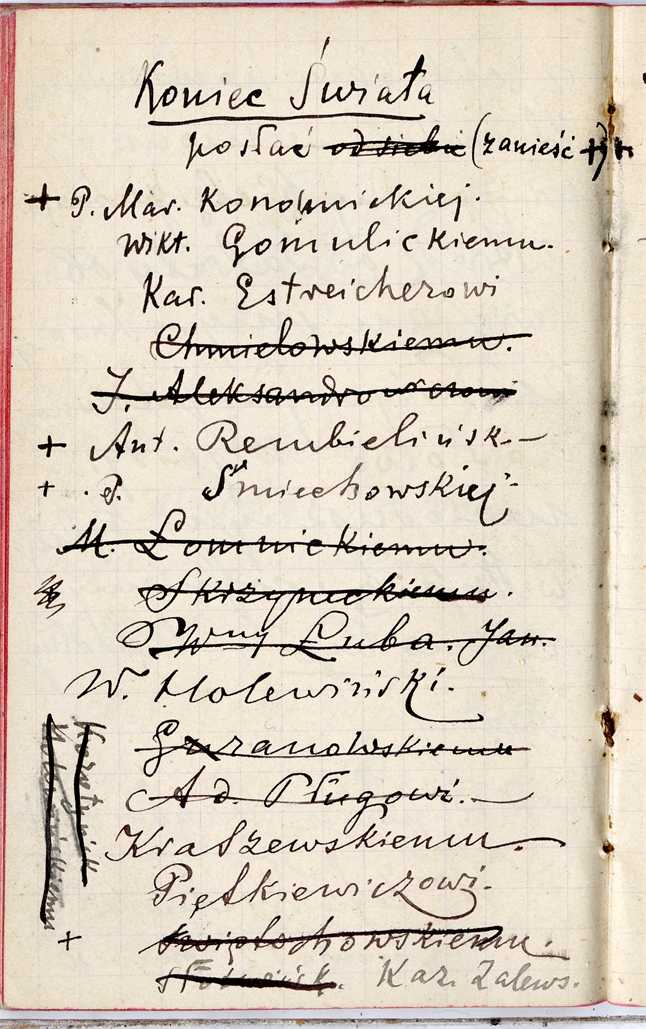 Koniec Świata
posłać od siebie (zanieść +)
+ P. Mar. Konopnickiej.
Wikt. Gomulickiemu.
Kar. Estreicherowi
Chmielowskiemu.
J. Aleksandrowiczowi
+ Ant. Rembielińsk.
+ P. Śmiechowskiej
M. Łomnickiemu.
Skrzyneckiemu.
Luba. Jan.
W. Holewiński.
Guranowskiemu
Ad. Pługowi.
Kraszewskiemu.
Piętkiewiczowi.
+ Świętochowskiemu.
Kaz. Zalews.